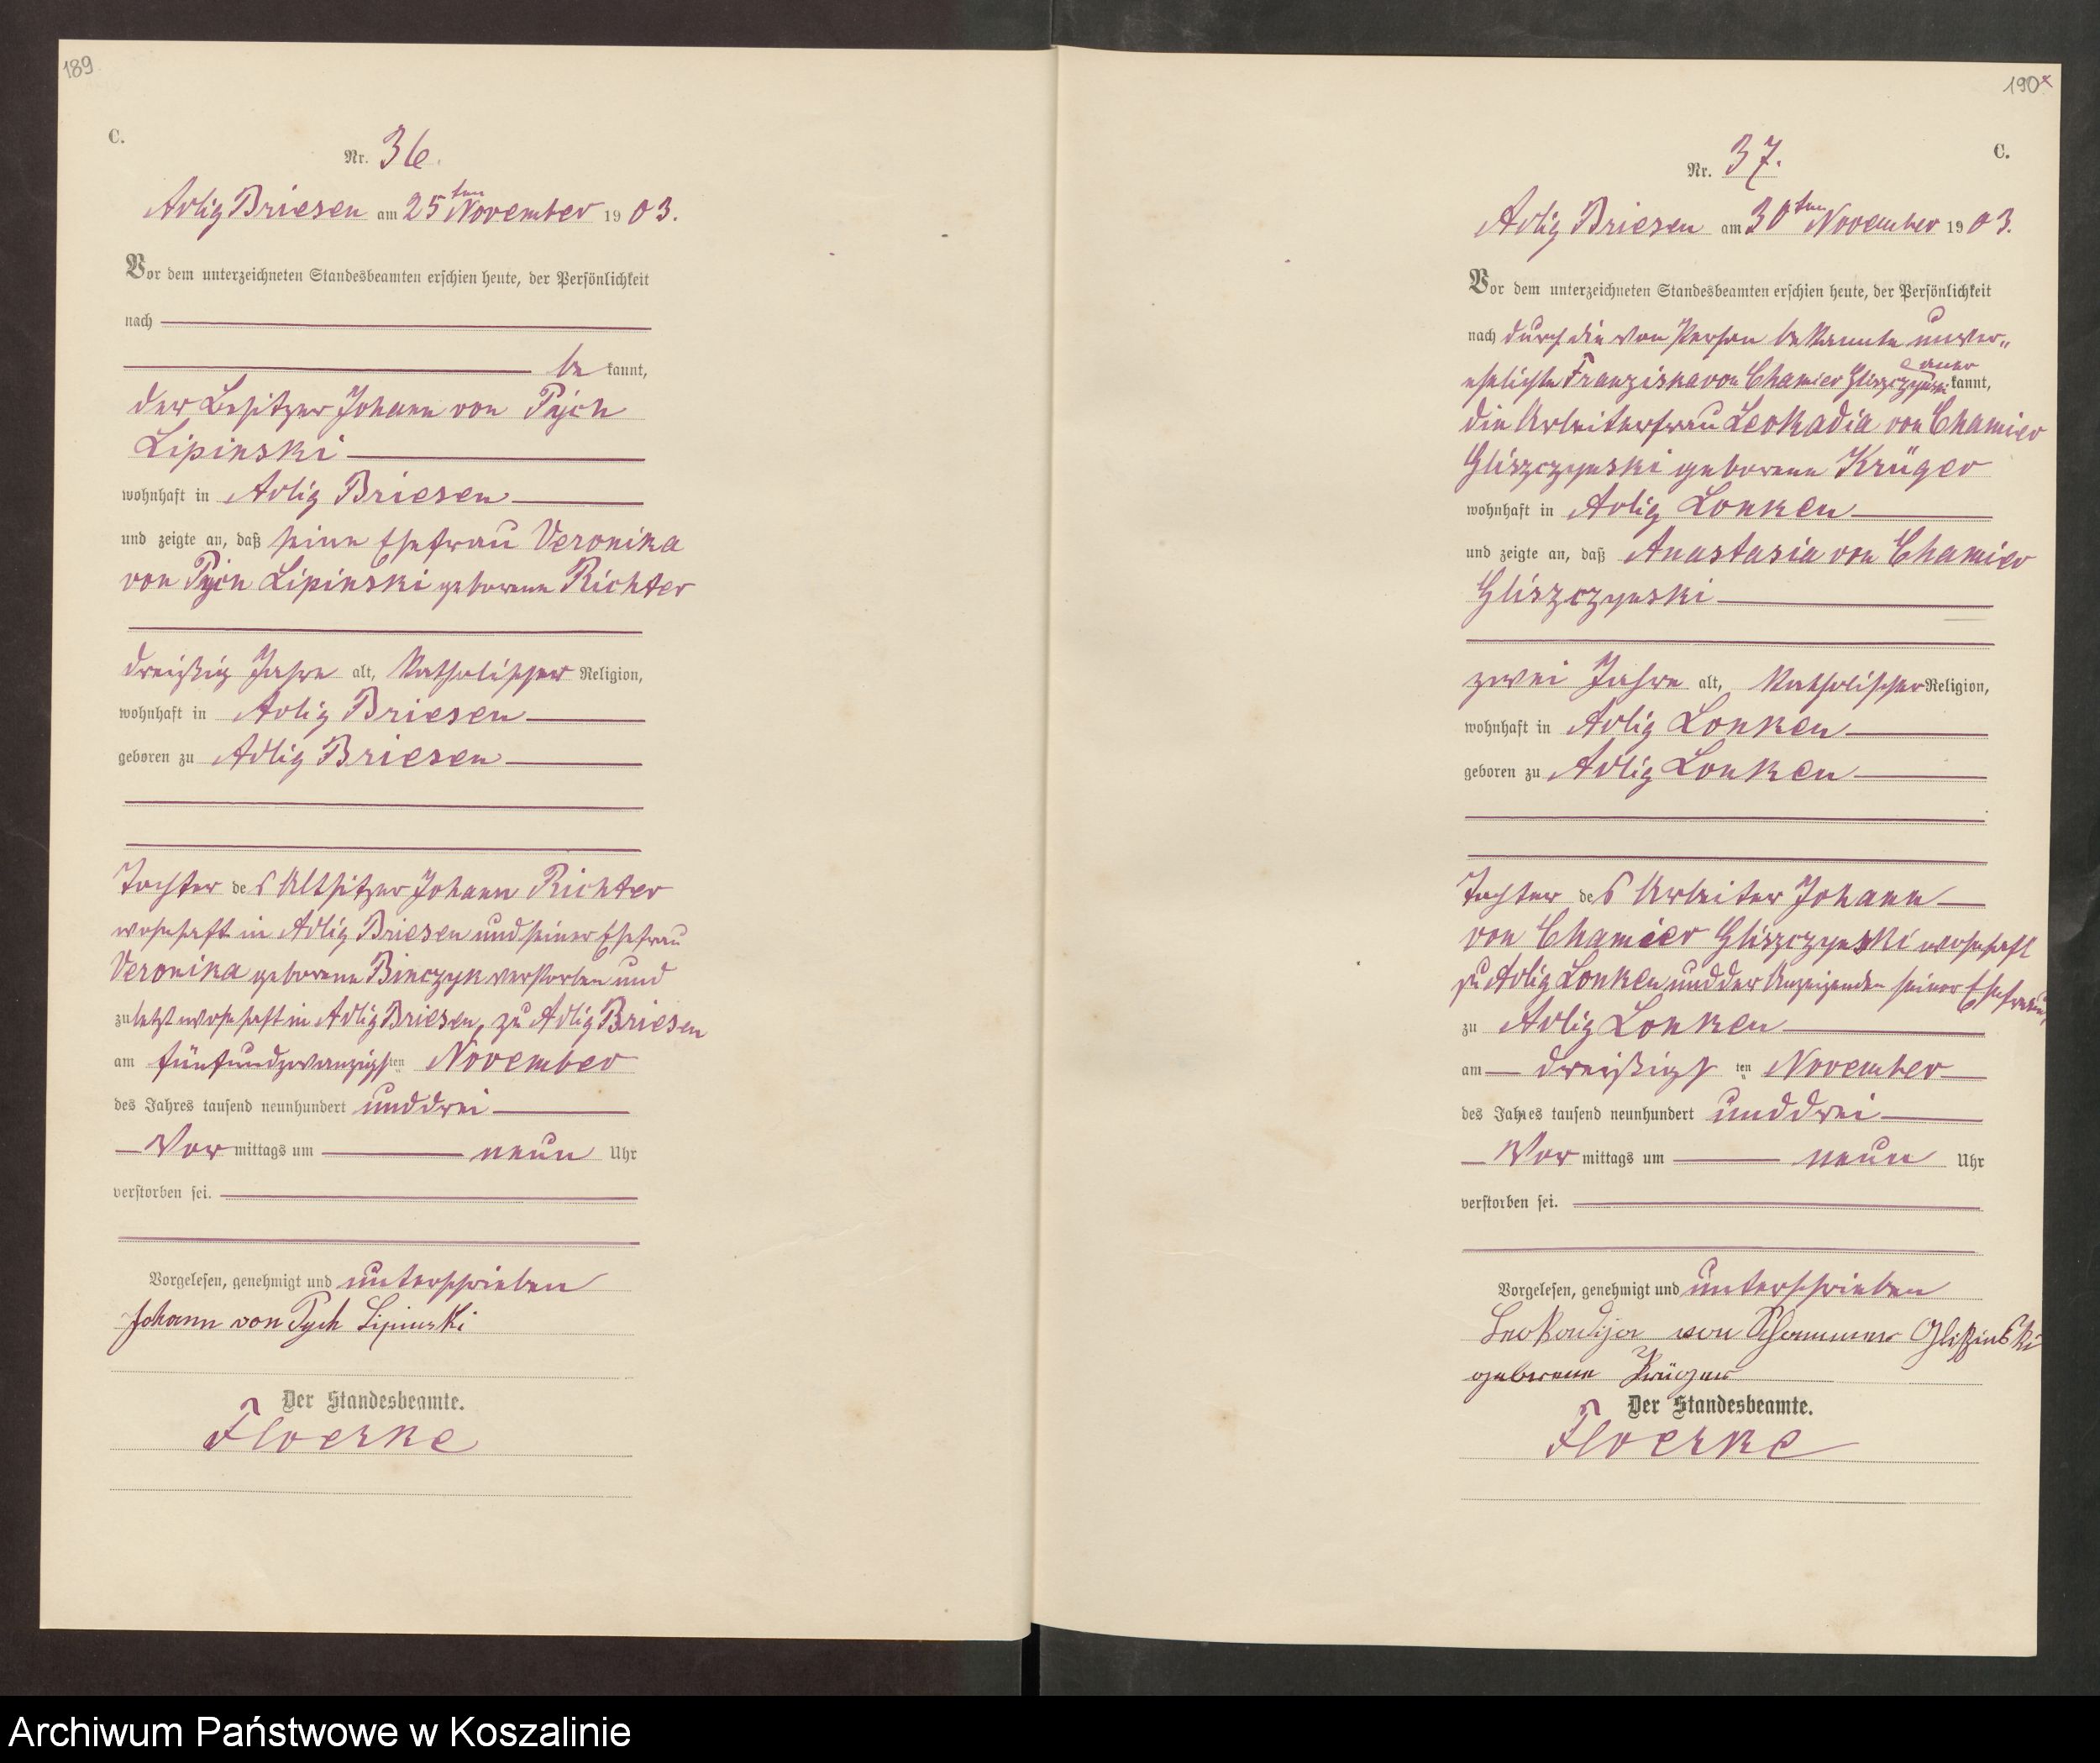 189
C.
Nr. 36.
Adlig Briesen am 25ten November 1903.
Vor dem unterzeichneten Standesbeamten erschien heute, der Persönlichkeit
nach
be kannt,
der Besitzer Johann von Pych
Lipinski
wohnhaft in Adlig Briesen
und zeigte an, daß seine Ehefrau Veronika
von Pych Lipinski geborene Richter
dreißig Jahre alt, katholischer Religion,
wohnhaft in Adlig Briesen
geboren zu Adlig Briesen
Tochter des Altsitzer Johann Richter
wohnhaft in Adlig Briesen und seiner Ehefrau
Veronika geborene Binczyk verstorben und
zuletzt wohnhaft in Adlig Briesen, zu Adlig Briesen
am fünfundzwanzigsten November
des Jahres tausend neunhundert und drei
Vor mittags um neun Uhr
verstorben sei.
Vorgelesen, genehmigt und unterschrieben
Johann von Pych Lipinski
Der Standesbeamte.
Floerke
190x
C.
Nr. 37.
Adlig Briesen am 30ten November 1903.
Vor dem unterzeichneten Standesbeamten erschien heute, der Persönlichkeit
nach durch die von Person bekannte unver„
ehelichte Franziska von Chamier Gliszczynski aner kannt,
die Arbeiterfrau Leokadia von Chamier
Gliszczynski geborene Krüger
wohnhaft in Adlig Lonken
und zeigte an, daß Anastasia von Chamier
Gliszczynski
zwei Jahre alt, katholischer Religion,
wohnhaft in Adlig Lonken
geboren zu Adlig Lonken
Tochter des Arbeiter Johann
von Chamier Gliszczynski wohnhaft
zu Adlig Lonken und der Anzeigenden seiner Ehefrau,
zu Adlig Lonken
am dreißigsten November
des Jahres tausend neunhundert und drei
Vor mittags um neun Uhr
verstorben sei.
Vorgelesen, genehmigt und unterschrieben
Leokadija von Schammer Glißinski
geborene Krüger
Der Standesbeamte.
Floerke
Archiwum Państwowe w Koszalinie